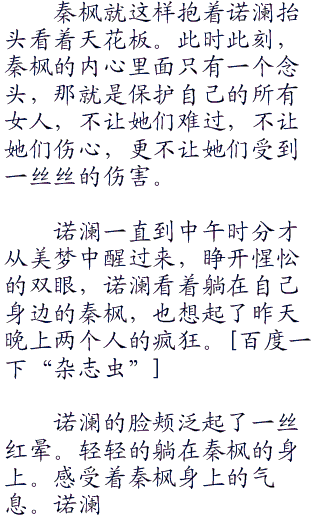 秦枫就这样抱着诺澜抬
头看着天花板。此时此刻，
秦枫的内心里面只有一个念
头，那就是保护自己的所有
女人，不让她们难过，不让
她们伤心，更不让她们受到
一丝丝的伤害。
诺澜一直到中午时分才
从美梦中醒过来，睁开惺忪
的双眼，诺澜看着躺在自己
身边的秦枫，也想起了昨天
晚上两个人的疯狂。[百度一
下“杂志虫”]
诺澜的脸颊泛起了一丝
红晕。轻轻的躺在秦枫的身
上。感受着秦枫身上的气
息。诺澜